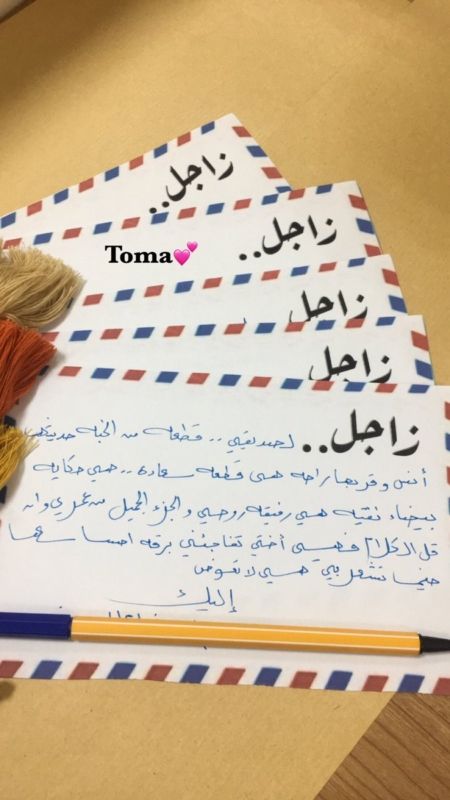 زاجل..
زاجل..
Toma💕
زاجل
زاجل
زاجل..
لصديقتي .. قطعه من الجنه حديثها
أنس وقربها راحه هي قطعه سعاده .. هي حكايه
بيضاء نقيه هي رفيقه روحي والجزء الجميل من عمري وان
قل الكلام فهي أختي تفاجئني برقه احساسها
حينما تشعر بي هي لا تعوض
إليك